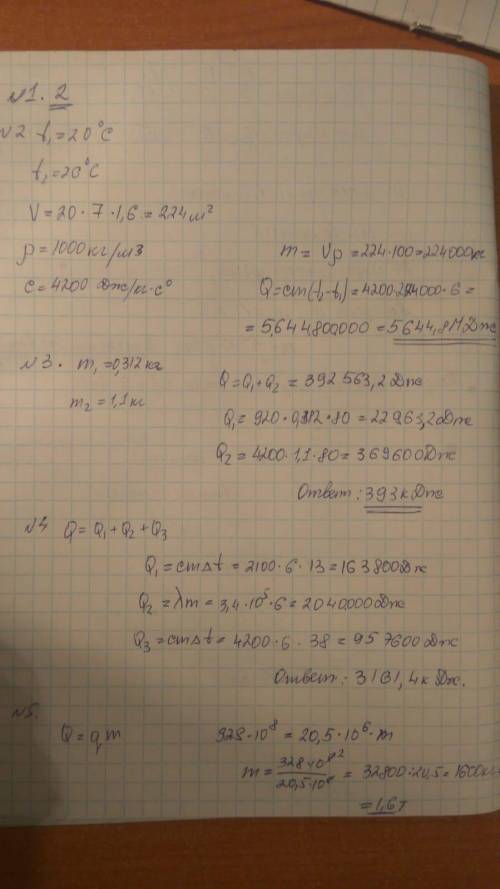 №1. 2
№2 t₁=20°C
t₂=20°C
V=20·7·1,6=224м²
ρ=1000кг/м3
m= Vρ=224·100=224000кг
c=4200 Дж/кг·с°
Q=cm(t₂-t₁)=4200·224000·6=
=5,644,800,000=5644,8МДж
№3. m₁=0,312кг
m₂=1,1кг
Q=Q₁+Q₂ = 392563,2Дж
Q₁=920·0,312·80=22963,2Дж
Q₂=4200·1,1·80=369600Дж
Ответ: 393кДж
№4 Q=Q₁+Q₂+Q₃
Q₁=cmΔt=2100·6·13=163800Дж
Q₂=λm=3,4·10⁵·6=2040000Дж
Q₃=cmΔt=4200·6·38=957600Дж
Ответ: 3161,4кДж.
№5.
Q=qm
328·10⁸=20,5·10⁶·m
m=328·10⁸/20,5·10⁶=32800:20,5=1600кг=
=1,6т